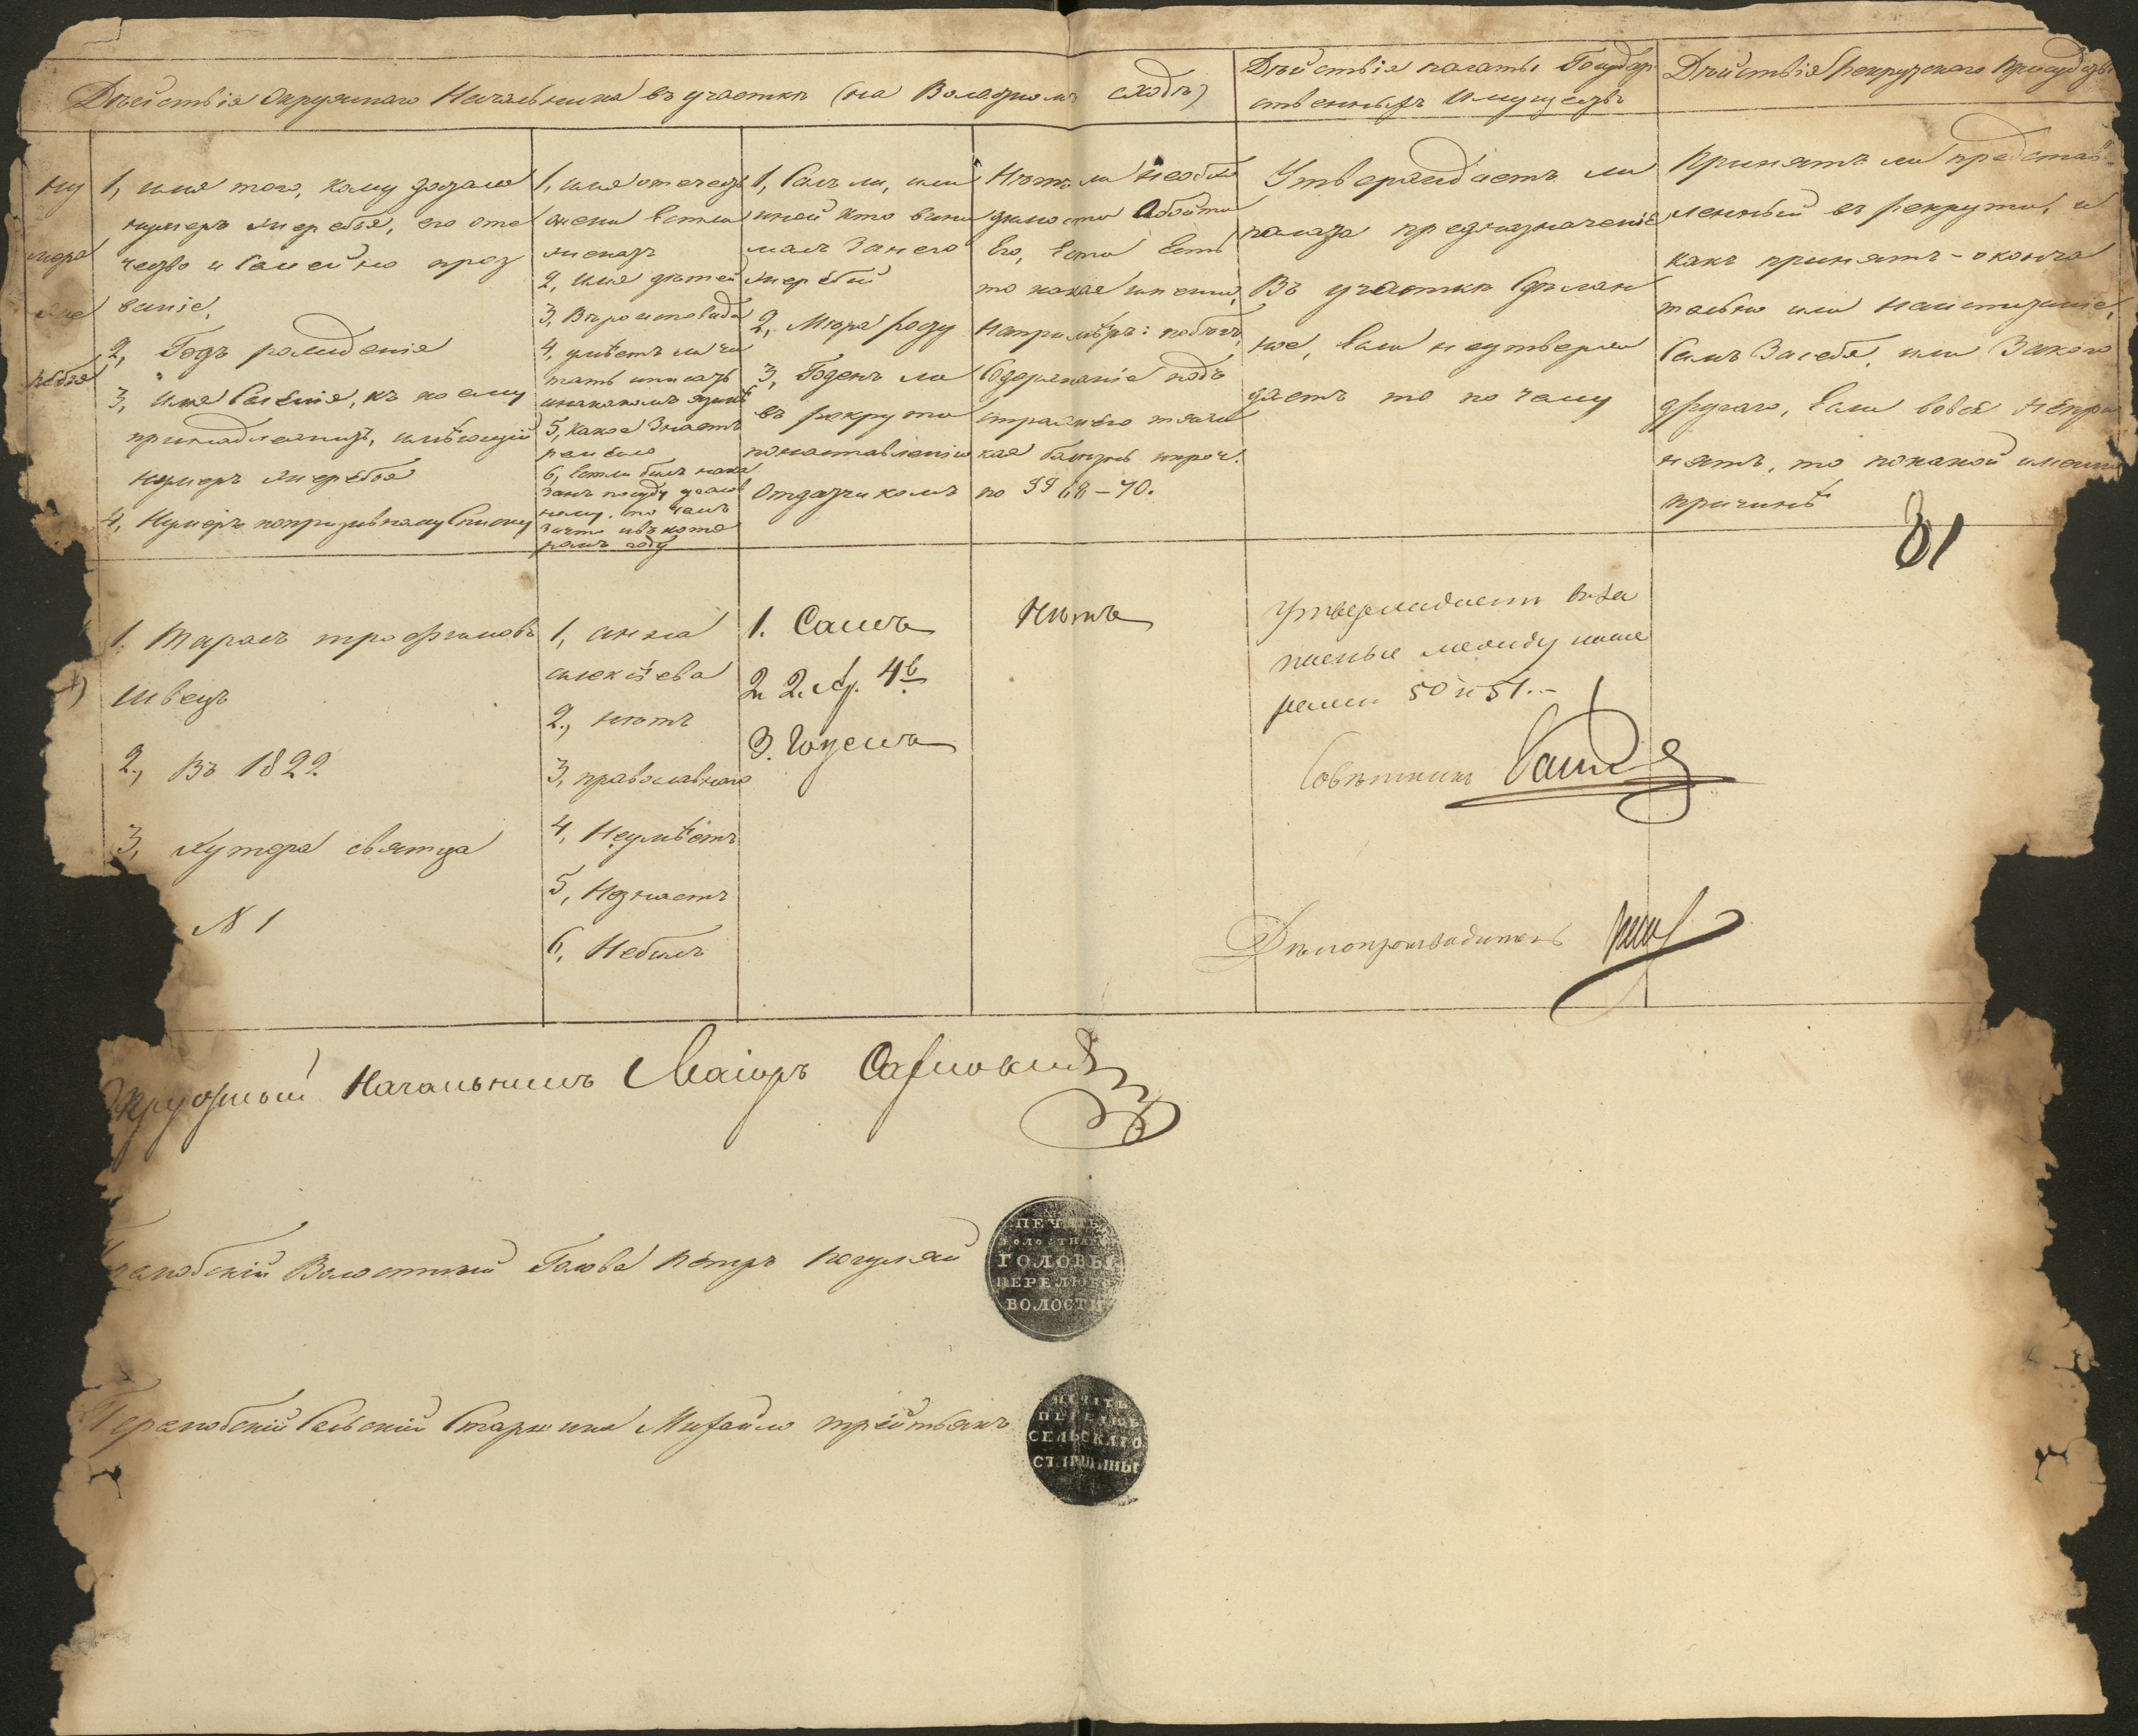 Дѣйствія Окружнаго Начальника въ участкѣ (на Волостномъ сходѣ)
Дѣйствія палаты Государ
ственныхъ Имуществъ
Дѣйствія Рекрутскаго Присудств
ну
мера
жре
1, имя того, кому достался
нумеръ жеребья, его оте
чество и Семейно проз
ваніе,
2, Годъ рожденія
3, имя Селенія, къ коему
принадлежитъ, имѣющій
нумеръ жеребья
4, Нумеръ попризывному Списку
1, имя отечество
жены Естли
женатъ
2, имя дѣтей
3, Вѣроисповѣда
4, умѣетъ ли чи
тать иписать
инакакомъ языкѣ
5, какое Знаетъ
ремесло
6, Естли былъ нака
занъ посуду
то чемъ
Зачто ивъ кото
ромъ году
1, Самъ ли, или
иной кто выни
малъ Занего
жеребій
2, Мѣра росту
3, Годенъ ли
въ рекруты
понаставленію
Отдатчикамъ
Нѣтъ ли Необхо
димости Обойти
Его, Если Есть
то какая имянно,
Напримѣръ: побѣгъ,
Содержаніе подъ
стражею тяж
кая болезнь ипроч.
по §§ 68-70.
Утверждаетъ ли
палата предназначеніе
Въ участкѣ Сдѣлан
ное, Если неутверж
даетъ то почему
Принятъ ли представ
ленный въ рекруты, и
какъ принятъ - оконча
тельно или наиспытаніе,
Самъ Засебя, или Закого
другаго, Если вовсе непри
нятъ, то покакой имянно
причинѣ
81
1. Тарасъ трофимовъ
швецъ
2, Въ 1822
3, Хутора святца
№ 1
1, анна
алексѣева
2, нѣтъ
3, православнаго
4, Неумѣетъ
5, Незнаетъ
6, Небылъ
1. Самъ
2. 2. Ар. 4 в
3. Годенъ
Нѣтъ
Утверждаетъ
между нуме
рами 50 и 51.-
Совѣтникъ
Дѣлопроизводитель
Окружный Начальникъ Маіоръ
Волостный Голова Петръ Погуляй
ПЕЧАТЬ
ВОЛОСТНАГО
ГОЛОВЫ
ПЕРЕЛЮБС
ВОЛОСТИ
Перелюбскій Сельскій Старшина Михайло трейтьякъ
ПЕЧАТЬ
ПЕРЕЛЮБ
СЕЛЬСКАГО
СТАРШИНЫ